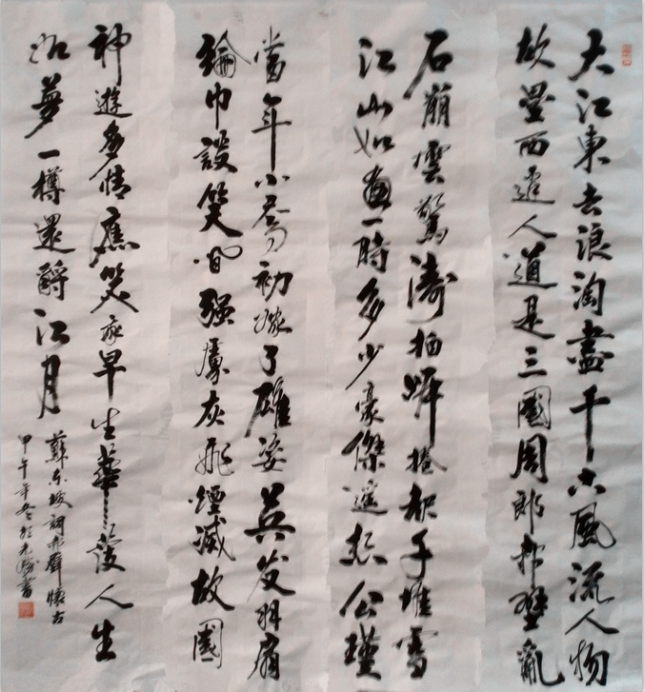 大江東去浪淘盡千古風流人物
故壘西邊人道是三國周郎赤壁亂
石崩雲驚濤拍岸捲起千堆雪
江山如畫一時多少豪傑遙想公瑾
當年小喬初嫁了雄姿英发羽扇
綸巾談笑間强虜灰飛煙滅故國
神遊多情應笑我早生華發人生
如夢一樽還酹江月
蘇東坡詞赤壁懷古
甲午年冬於書